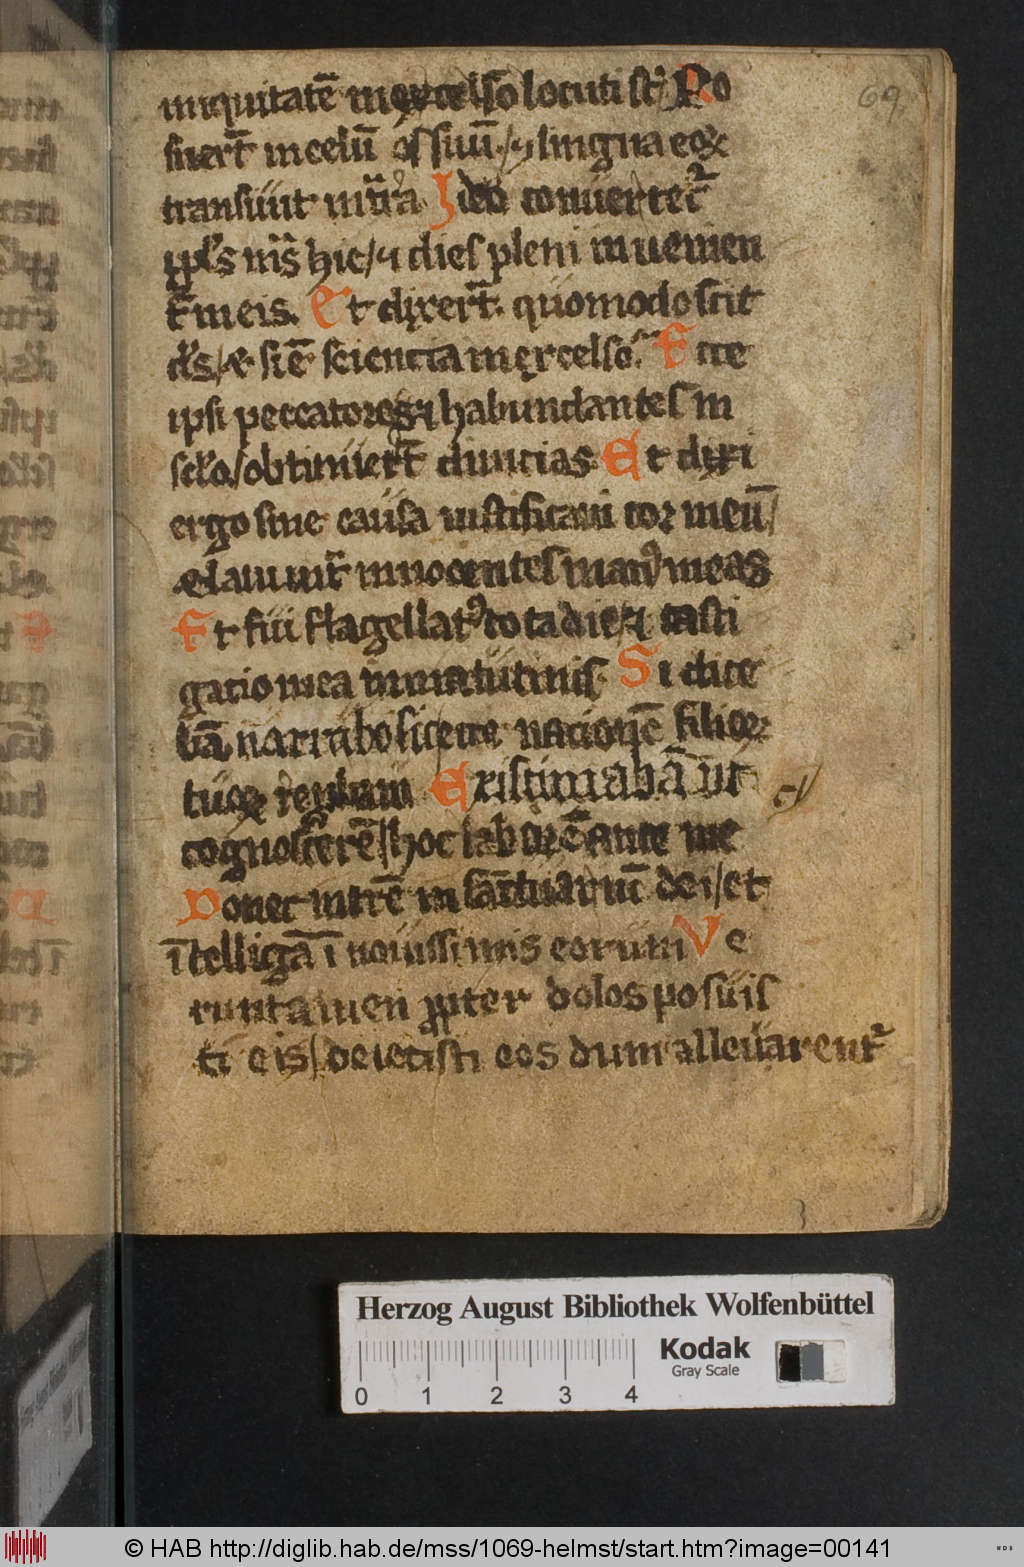 69
iniquitatē in excelso locuti st̄ Po
suert̄ in celū os suū / ⁊ lingua eoꝝ
transiuit in t̄ra Ideo conuertet᷑
ppl̄s m̄s hic / ⁊ dies pleni inuenien
t᷑ in eis. Et dixert̄. quomodo scit
d̄s / & si ē sciencia in excelso. Ecce
ipsi peccatores ⁊ habundantes in
sclo / obtinuert̄ diuicias. Et dixi
ergo sine causa iustificaui cor meū /
& laui int̄ innocentes manꝰ meas
Et fui flagellatꝰ tota die ⁊ casti
gatio mea in matutinis. Si dice
bā narrabo sic ecce nacionē filioꝝ
tuoꝝ reprobaui Existimabā ut
cognoscerē / hoc labor ē ante me
Donec intrē in sanctuariū dei / et
ītelligā ī nouissimis eorum Ve
runtamen propter dolos posuis
ti eis / deiecisti eos dum alleuarent᷑
Herzog August Bibliothek Wolfenbüttel
0 1 2 3 4
Kodak
Gray Scale
© HAB http://diglib.hab.de/mss/1069-helmst/start.htm?image=00141